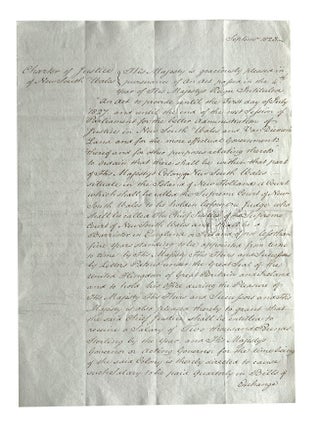 Septemr 1823
Charter of Justice
of New South Wales
His Majesty is graciously pleased in
pursuance of An Act passed in the 4th
Year of His Majestys Reign Intituled
An Act to provide until the First day of July
1827 and until the end of the next Session of
Parliament for the better Administration of
Justice in New South Wales and Van Diemens
Land and for the more effectual Government
thereof and for other purposes relating thereto
to ordain that there shall be within that part
of His Majestys Colony New South Wales
situate in the Island of New Holland a Court
which shall be called the Supreme Court of New
South Wales to be holden before a Judge who
shall be called The Chief Justice of the Supreme
Court of New South Wales and who is a
Barrister in England or Ireland of not less than
five Years standing to be appointed from time
to time by His Majesty His Heirs and Successors
by Letters Patent under the Great Seal of the
United Kingdom of Great Britain and Ireland
and to hold his Office during the Pleasure of
His Majesty His Heirs and Successors and His
Majesty is also pleased thereby to grant that
the said Chief Justice shall be entitled to
receive a Salary of Two thousand Pounds
Sterling by the Year and His Majestys
Governor or Acting Governor for the time being
of the said Colony is thereby directed to cause
such Salary to be paid Quarterly in Bills of
Exchange